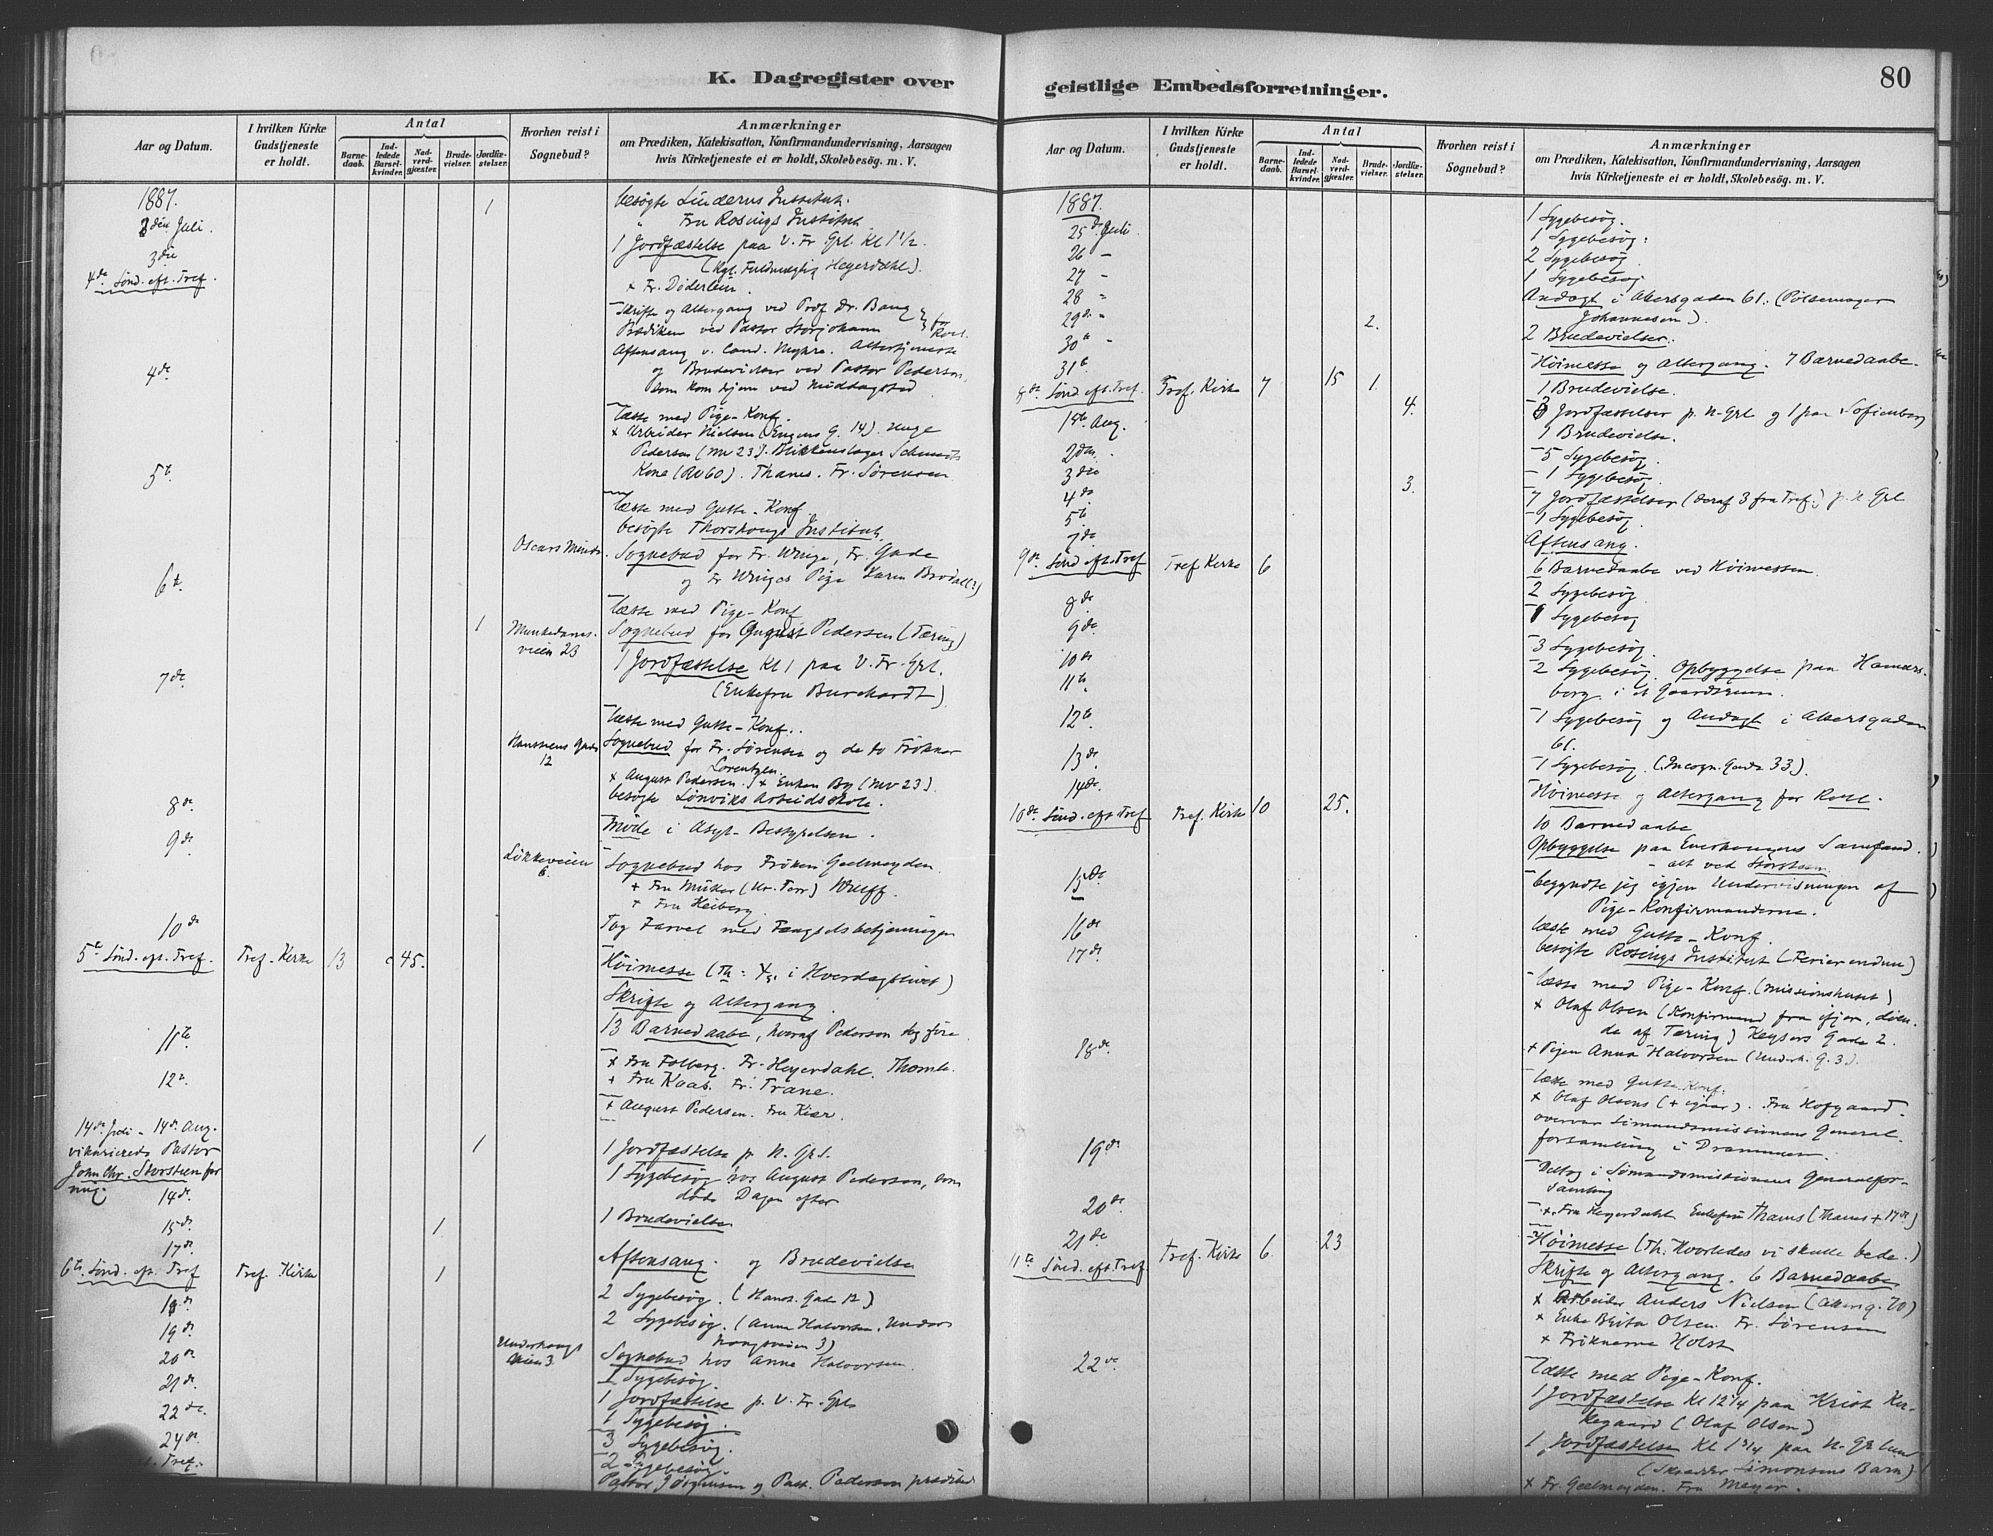 K. Dagregister over
Aar og Datum.
I hvilken Kirke Gudstjeneste er holdt.
Antal
Barnedaab.
Indledede Barselkvinder.
Nadverdgjæster.
Brudevielser.
Jordfæstelser.
Hvorhen reist i Sognebud?
Anmærkninger
om Prædiken, Katekisation, Konfirmandundervisning, Aarsagen
hvis Kirketjeneste ei er holdt, Skolebesøg. m. V.
1887.
2den Juli. 1 besøgte Linderns Institut.
" Fru Rosings Institut
3die 1 Jordfæstelse paa V. Fr Grl. Kl 1½.
(Kgl. Fuldmægtig Heyerdahl)
+ Fr. Döderlein.
4de Sønd. eft. Tref. Skrifte og Altergang ved Prof Dr. Bang
Prædiken ved Pastor Storjohann
Aftensang v. Cand. Myhre. Altertjeneste
og Brudevielser ved Pastor Pederson
som kom hjem ved Middagstid
4de læste med Pige-Konf.
+ Arbeider Nielsen (Engens G. 14). unge
Pedersen (Mv 23). Blikkenslager Schmidts
Kone (Rv 60). Thams. Fr. Sørensen
5te læste med Gutte-Konf
besøgte Institut.
Oscars Sognebud for Fr. Winge, Fr. Gade
og Fr Winges Pige Karen
6te læste med Pige-Konf
Munkedamsveien 23 Sognebud for August Pedersen (Tæring)
1 1 Jordfæstelse Kl 1 paa V. Fr. Grl.
(Enkefru Burchardt)
7de læste med Gutte-Konf.
Gade 12 Sognebud for Fr. Sørensen og de to Frøkner
Lorentzen.
+ August Pedersen. + Enken By (Mv 23).
besøgte Lønviks Arbeidsskole.
8de Møde i Asyl-Bestyrelsen.
9de Løkkeveien 6. Sognebud hos Frøken Geelmuyden
+ Fru Müller (Kr. Torv) Wulff.
+ Fru Heiberg.
10de Tog Farvel med Fængselsbetjeningen
5te Sønd. eft. Tref. Tref. Kirke 13 c 45. Høimesse ( i Hverdagslivet)
Skrifte og Altergang
13 Barnedaabe, hvoraf Pederson tog fire
11te + Fru Folberg. Fr. Heyerdahl. Thomle.
+ Fru Kaas. Fr. Trane.
12te + August Pedersen. Fru Kiær.
14de Juli - 14de Aug.
vikarierede Pastor
John Chr. Storsteen for
mig.
1 1 Jordfæstelse p. N. Grl.
14de 1 Sygebesøg hos August Pedersen, som
døde Dagen efter
15de 1 1 Brudevielse
17de
6te Sønd. eft. Tref Tref. Kirke 1 Aftensang. og Brudevielse
18de 2 Sygebesøg. (Hans. Gade 12)
19de 2 Sygebesøg. (Anna Halvorsen. Underhaugsveien 3)
20de Underhaugsveien 3. Sognebud hos Anna Halvorsen.
21de 1 Sygebesøg.
22de. 1 Jordfæstelse p. V. Fr. Grl.
1 Sygebesøg.
24de. 3 Sygebesøg.
2 Sygebesøg
Tref. Pastor Jørgensen og Past. Pederson prædiked
geistlige Embedsforretninger.
80
Aar og Datum.
I hvilken Kirke Gudstjeneste er holdt.
Antal
Barnedaab.
Indledede Barselkvinder.
Nadverdgjæster.
Brudevielser.
Jordfæstelser.
Hvorhen reist i Sognebud?
Anmærkninger
om Prædiken, Katekisation, Konfirmandundervisning, Aarsagen
hvis Kirketjeneste ei er holdt, Skolebesøg. m. V.
1887.
25de Juli. 1 Sygebesøg.
26 - 1 Sygebesøg.
27 - 2 Sygebesøg
28 " 1 Sygebesøg
29de " Andagt i Akersgaden 61. (Pølsemager
Johannesen).
30te " 2. 2 Brudevielser.
31te
8de Sønd. eft. Tref. Tref. Kirke 7 15 1. Høimesse og Altergang. 7 Barnedaabe.
1 Brudevielse.
1ste Aug. 4. 3 Jordfæstelser p. N. Grl og 1 paa Sofienberg
1 Brudevielse.
2den. 5 Sygebesøg.
3die 1 Sygebesøg.
4de 3. 7 Jordfæstelser (deraf 3 fra Tref.) p. N Grl
5te 1 Sygebesøg
7de
9de Sønd. eft. Tref Tref. Kirke 6 Aftensang.
6 Barnedaabe ved Høimessen.
8de 2 Sygebesøg
9de Sygebesøg
10de 3 Sygebesøg.
11te 2 Sygebesøg. Opbyggelse paa Hammersborg
i et Gaardsrum.
12te. 1 Sygebesøg og Andagt i Akersgaden
61.
13de. 1 Sygebesøg. (Incogn. Gade 33).
14de.
10de Sønd. eft. Tref Tref. Kirke 10 25. Høimesse og Altergang for Konf.
10 Barnedaabe
Opbyggelse paa Enerhaugens Samfund.
- alt ved Storsteen.
15de. begyndte jeg igjen Undervisningen af
Pige-Konfirmanderne.
16de læste med Gutte-Konf.
besøgte Rosings Institut (Ferier endnu)
17de læste med Pige-Konf. (Missionshuset)
+ Olaf Olsen (Konfirmand fra ifjor, døende
af Tæring) Keysers Gade 2.
+ Pigen Anna Halvorsen (Underh. G. 3).
18de. læste med Gutte Konf.
+ Olaf Olsens (+ igaar). Fru Hofgaard.
overvar Sømandsmissionens Generalforsamling
i Drammen.
19de Deltog i Sømandsmissionens Generalforsamling
20de + Fru Heyerdahl Enkefru Thams (Thams + 17de)
21de
11te Sønd. eft. Tref Tref. Kirke 6 23 Høimesse (Th. Hvorledes vi skulle bede.)
Skrifte og Altergang. 6 Barnedaabe
+ Arbeider Anders Nielsen (Akersg. 70)
+ Enke Berta Olsen. Fr. Sørensen
+ Frøknerne Holst
22de læste med Pige-Konf.
1 Jordfæstelse Kl 12¼ paa Krist Kirkegaard
(Olaf Olsen)
1 Jordfæstelse Kl 1¾ paa N. Grlund
(Skrædder Simonsens Barn)
+ Fr. Geelmuyden. Fru Meyer.